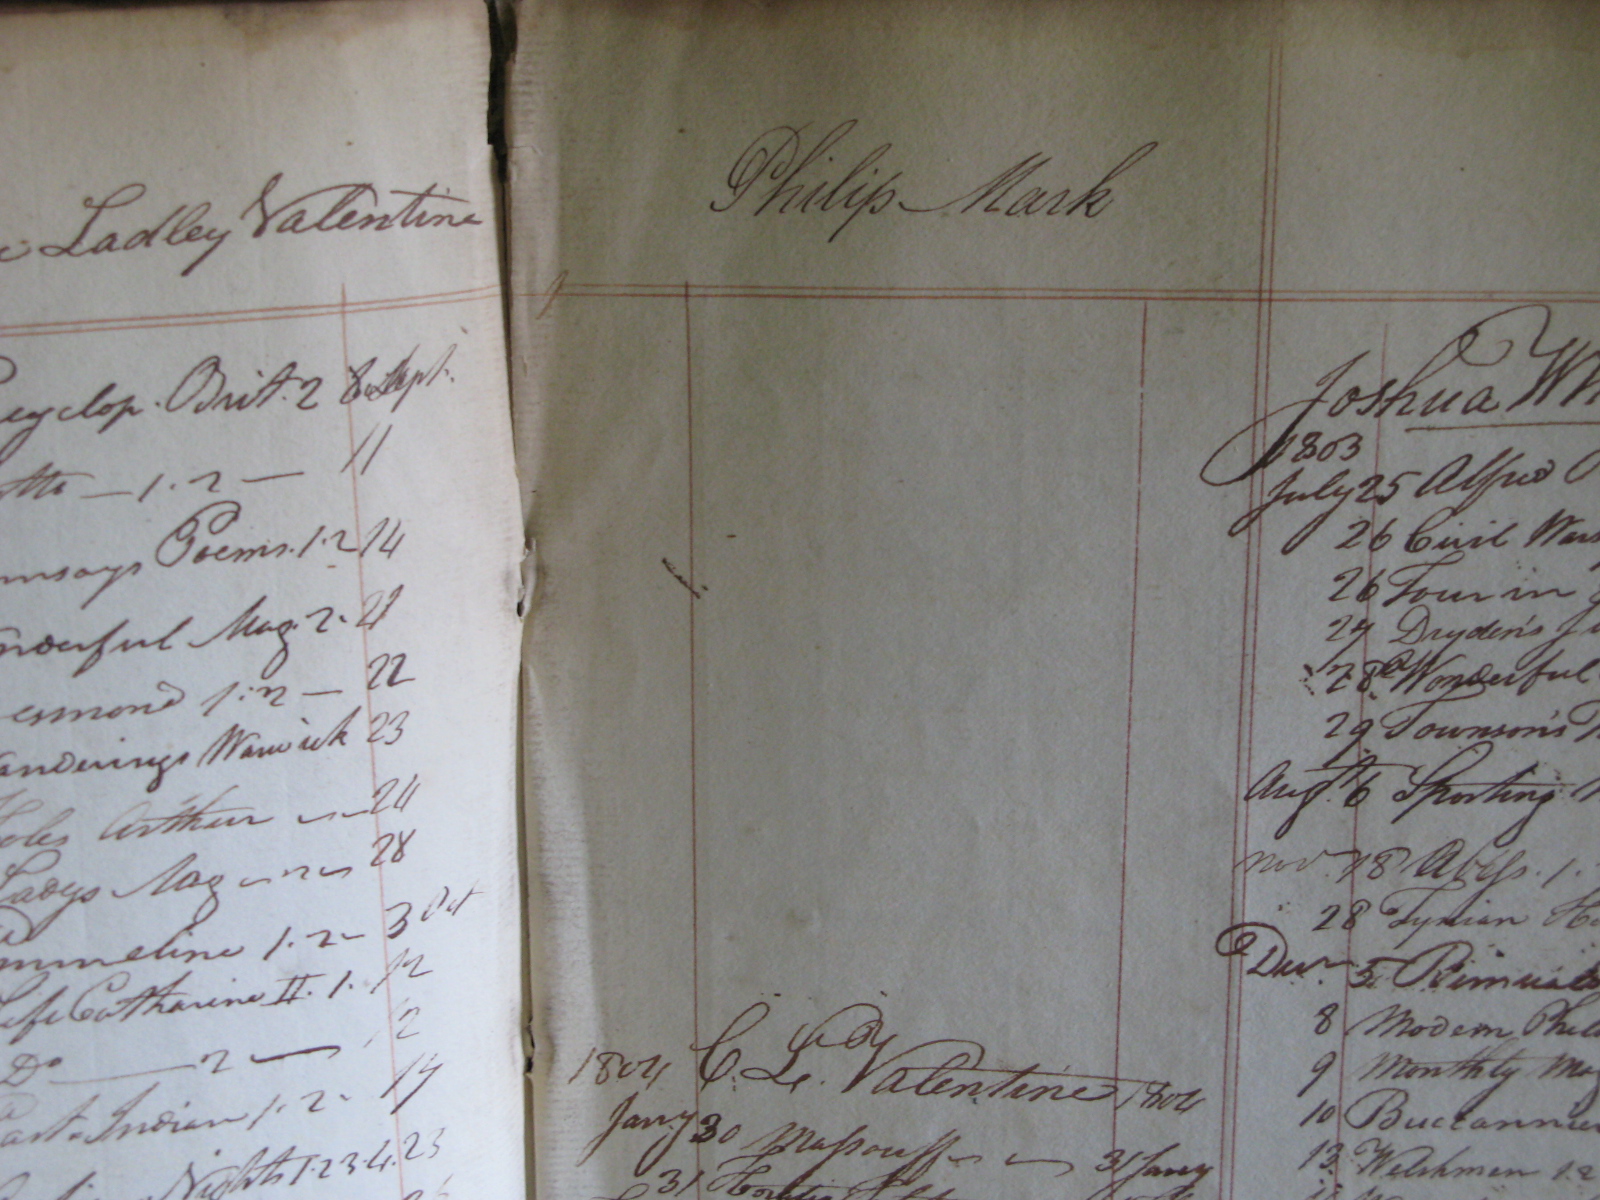 Ladley Valentine
eyclop. Brit. 2 8 Sept.
tto — 1. 2 — 11
msays Poems. 1. 2 14
nderful Mag. 2. 21
esmond 1. 2 — 22
anderings Warwick 23
Arthur 24
Ladys Mag 28
mmeline 1. 2 — 3 Oct
Life Catharine II. 1. 12
Do — 2 — 12
ast Indian 1. 2. 17
Nights 1. 2 3. 4. 23
Philip Mark
1804 C. Ldy Valentine 1804
Jany 30 31 Jany
31
Joshua Wh
1803
July 25 Alfred
26 Civil Wars
26 Tour in
27 Dryden's
28 Wonderful
29 Townson's
Augt. 6 Sporting
Nov. 18 1.
28 Tynian
Decr 5
8 Modern Phil
9 Monthly Mag
10 Buccannie
13 Welshmen 1 2